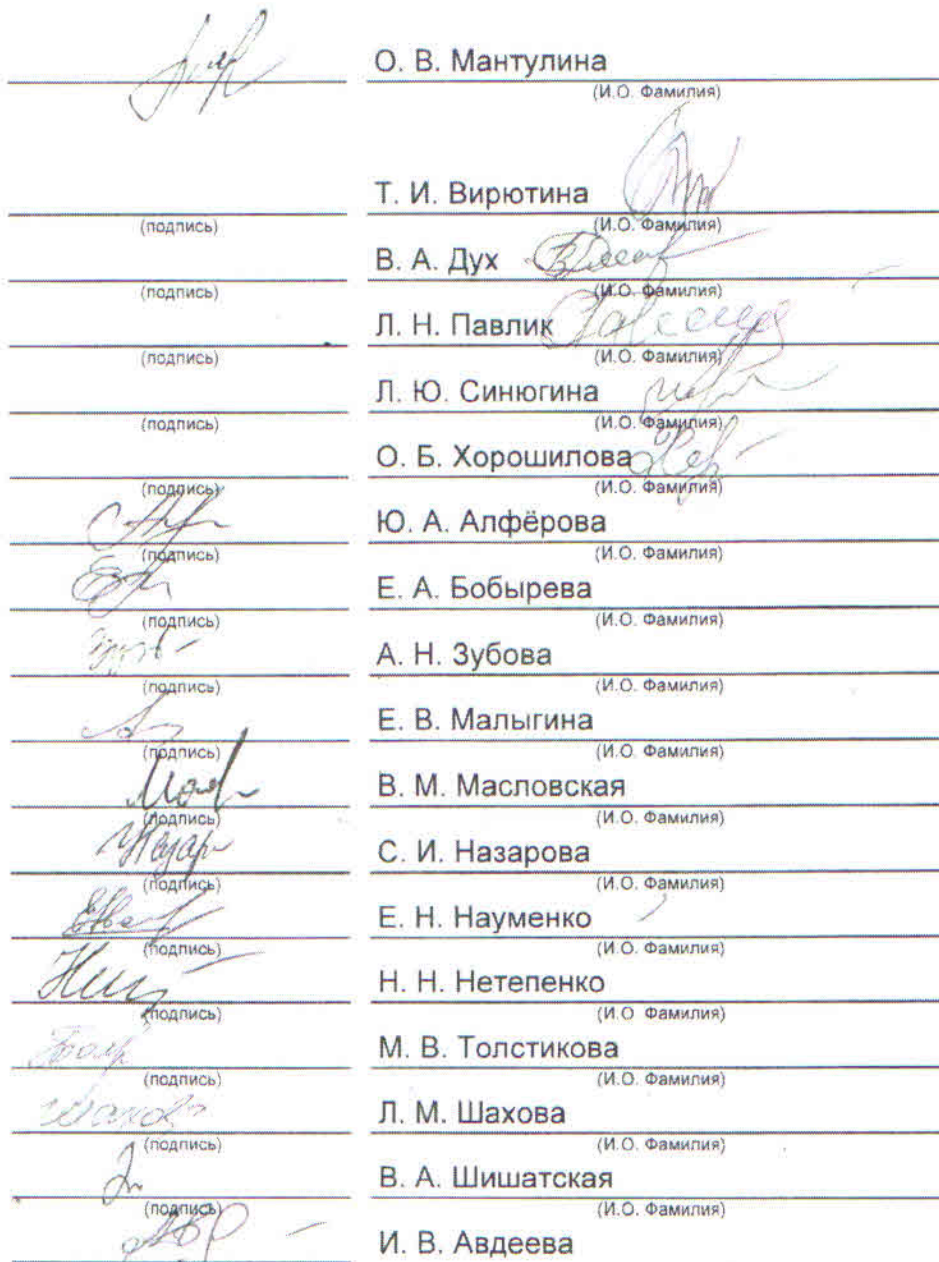 О. В. Мантулина
(И.О. Фамилия)
Т. И. Вирютина
(подпись) (И.О. Фамилия)
В. А. Дух
(подпись) (И.О. Фамилия)
Л. Н. Павлик
(подпись) (И.О. Фамилия)
Л. Ю. Синюгина
(подпись) (И.О. Фамилия)
О. Б. Хорошилова
(подпись) (И.О. Фамилия)
Ю. А. Алфёрова
(подпись) (И.О. Фамилия)
Е. А. Бобырева
(подпись) (И.О. Фамилия)
А. Н. Зубова
(подпись) (И.О. Фамилия)
Е. В. Малыгина
(подпись) (И.О. Фамилия)
В. М. Масловская
(подпись) (И.О. Фамилия)
С. И. Назарова
(подпись) (И.О. Фамилия)
Е. Н. Науменко
(подпись) (И.О. Фамилия)
Н. Н. Нетепенко
(подпись) (И.О Фамилия)
М. В. Толстикова
(подпись) (И.О. Фамилия)
Л. М. Шахова
(подпись) (И.О. Фамилия)
В. А. Шишатская
(подпись) (И.О. Фамилия)
И. В. Авдеева